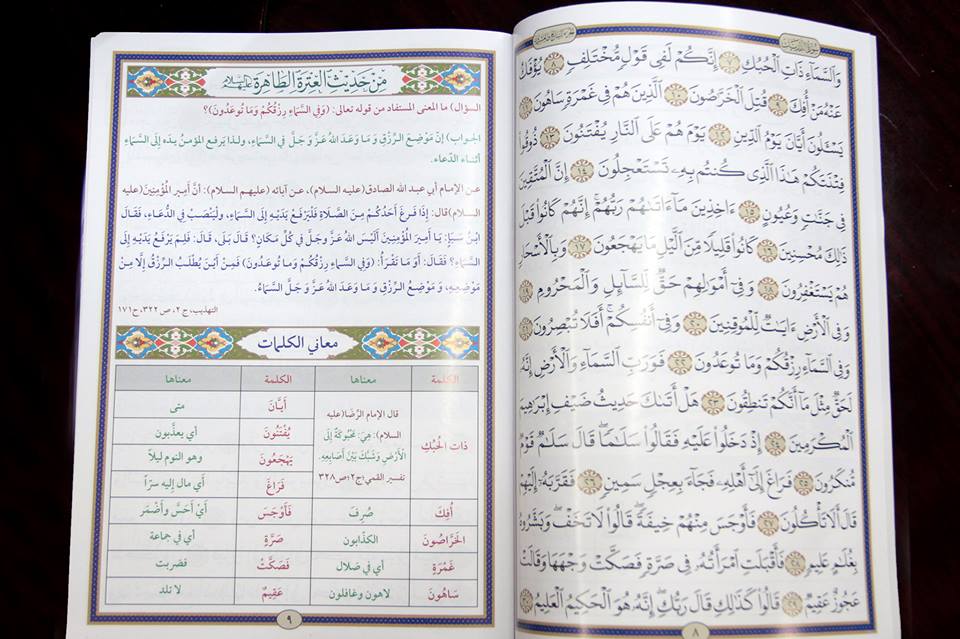 وَالسَّمَآءِ ذَاتِ الْحُبُكِ ٧ إِنَّكُمْ لَفِي قَوْلٍ مُّخْتَلِفٍ ٨ يُؤْفَكُ
عَنْهُ مَنْ أُفِكَ ٩ قُتِلَ الْخَرَّصُونَ ١٠ الَّذِينَ هُمْ فِي غَمْرَةٍ سَاهُونَ ١١
يَسْـَٔلُونَ أَيَّانَ يَوْمُ الدِّينِ ١٢ يَوْمَ هُمْ عَلَى النَّارِ يُفْتَنُونَ ١٣ ذُوقُوا
فِتْنَتَكُمْ هَٰذَا الَّذِي كُنتُم بِهِ تَسْتَعْجِلُونَ ١٤ إِنَّ الْمُتَّقِينَ
فِي جَنَّٰتٍ وَعُيُونٍ ١٥ ءَاخِذِينَ مَآ ءَاتَىٰهُمْ رَبُّهُمْ إِنَّهُمْ كَانُوا قَبْلَ
ذَٰلِكَ مُحْسِنِينَ ١٦ كَانُوا قَلِيلًا مِّنَ الَّيْلِ مَا يَهْجَعُونَ ١٧ وَبِالْأَسْحَارِ
هُمْ يَسْتَغْفِرُونَ ١٨ وَفِي أَمْوَٰلِهِمْ حَقٌّ لِّلسَّآئِلِ وَالْمَحْرُومِ ١٩
وَفِي الْأَرْضِ ءَايَٰتٌ لِّلْمُوقِنِينَ ٢٠ وَفِي أَنفُسِكُمْ أَفَلَا تُبْصِرُونَ ٢١
وَفِي السَّمَآءِ رِزْقُكُمْ وَمَا تُوعَدُونَ ٢٢ فَوَرَبِّ السَّمَآءِ وَالْأَرْضِ إِنَّهُ
لَحَقٌّ مِّثْلَ مَآ أَنَّكُمْ تَنطِقُونَ ٢٣ هَلْ أَتَىٰكَ حَدِيثُ ضَيْفِ إِبْرَٰهِيمَ
الْمُكْرَمِينَ ٢٤ إِذْ دَخَلُوا عَلَيْهِ فَقَالُوا سَلَٰمًا قَالَ سَلَٰمٌ قَوْمٌ
مُّنكَرُونَ ٢٥ فَرَاغَ إِلَىٰ أَهْلِهِ فَجَآءَ بِعِجْلٍ سَمِينٍ ٢٦ فَقَرَّبَهُ إِلَيْهِمْ
قَالَ أَلَا تَأْكُلُونَ ٢٧ فَأَوْجَسَ مِنْهُمْ خِيفَةً قَالُوا لَا تَخَفْ وَبَشَّرُوهُ
بِغُلَٰمٍ عَلِيمٍ ٢٨ فَأَقْبَلَتِ امْرَأَتُهُ فِي صَرَّةٍ فَصَكَّتْ وَجْهَهَا وَقَالَتْ
عَجُوزٌ عَقِيمٌ ٢٩ قَالُوا كَذَٰلِكِ قَالَ رَبُّكِ إِنَّهُ هُوَ الْحَكِيمُ الْعَلِيمُ ٣٠
٨
مِنْ حَدِيثِ الْعِتْرَةِ الطَّاهِرَةِ عليهم السلام
السؤال) ما المعنى المستفاد من قوله تعالى: (وَفِي السَّمَاءِ رِزْقُكُمْ وَمَا تُوعَدُونَ)؟
الجواب) إنّ مَوْضِعَ الرِّزْقِ وَمَا وَعَدَ اللهُ عَزَّ وَجَلَّ في السَّمَاءِ، ولذا يرفع المؤمنُ يدَه إلى السَّمَاءِ
أثناء الدّعاء.
عن الإمام أبي عبد الله الصادق(عليه السلام)، عن آبائه (عليهم السلام): أنَّ أَمِيرَ الْمُؤْمِنِينَ(عليه
السلام)قال: إِذَا فَرَغَ أَحَدُكُمْ مِنَ الصَّلَاةِ فَلْيَرْفَعْ يَدَيْهِ إِلَى السَّمَاءِ، وَلْيَنْصَبْ فِي الدُّعَاءِ، فَقَالَ
ابْنُ سَبَإٍ: يَا أَمِيرَ الْمُؤْمِنِينَ أَلَيْسَ اللهُ عَزَّ وَجَلَّ فِي كُلِّ مَكَانٍ؟ قَالَ بَلَى، قَالَ: فَلِمَ يَرْفَعُ يَدَيْهِ إِلَى
السَّمَاءِ؟ فَقَالَ: أَوَ مَا تَقْرَأُ: (وَفِي السَّمَاءِ رِزْقُكُمْ وَمَا تُوعَدُونَ) فَمِنْ أَيْنَ يُطْلَبُ الرِّزْقُ إِلَّا مِنْ
مَوْضِعِهِ، وَمَوْضِعُ الرِّزْقِ وَمَا وَعَدَ اللهُ عَزَّ وَجَلَّ السَّمَاءُ.
التهذيب، ج ٢، ص ٣٢٢، ح ١٧١
معاني الكلمات
الكلمة معناها الكلمة معناها
ذات الْحُبُكِ قال الإمام الرِّضَا(عليه
السلام): هِيَ: مَحْبُوكَةٌ إِلَى
الْأَرْضِ وَشَبَّكَ بَيْنَ أَصَابِعِهِ.
تفسير القمي؛ج٢؛ص٣٢٨
أَيَّانَ متى
يُفْتَنُونَ أي يعذّبون
يَهْجَعُونَ وهو النوم ليلاً
فَرَاغَ أي مال إليه سرّاً
أُفِكَ صُرِفَ فَأَوْجَسَ أَيْ أَحَسَّ وأَضْمَر
الْخَرَّاصُونَ الكذّابون صَرَّةٍ أي في جماعة
غَمْرَةٍ أي في ضلال فَصَكَّتْ فضربت
سَاهُونَ لاهون وغافلون عَقِيمٌ لا تلد
٩